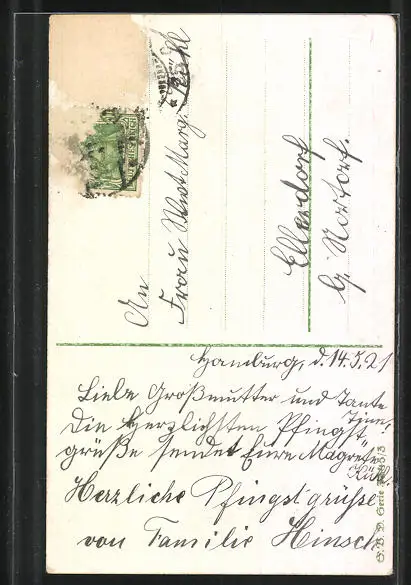 An
Frau Wwe. Marg. Kühl
Ellerdorf
b. Nortorf.
Hamburg, d. 14.5.21
Liebe Großmutter und Tante
Tine!
Die herzlichsten Pfingst
grüße sendet Eure Magrete
Herzliche Pfingstgrüsse
von Familie Hinsch